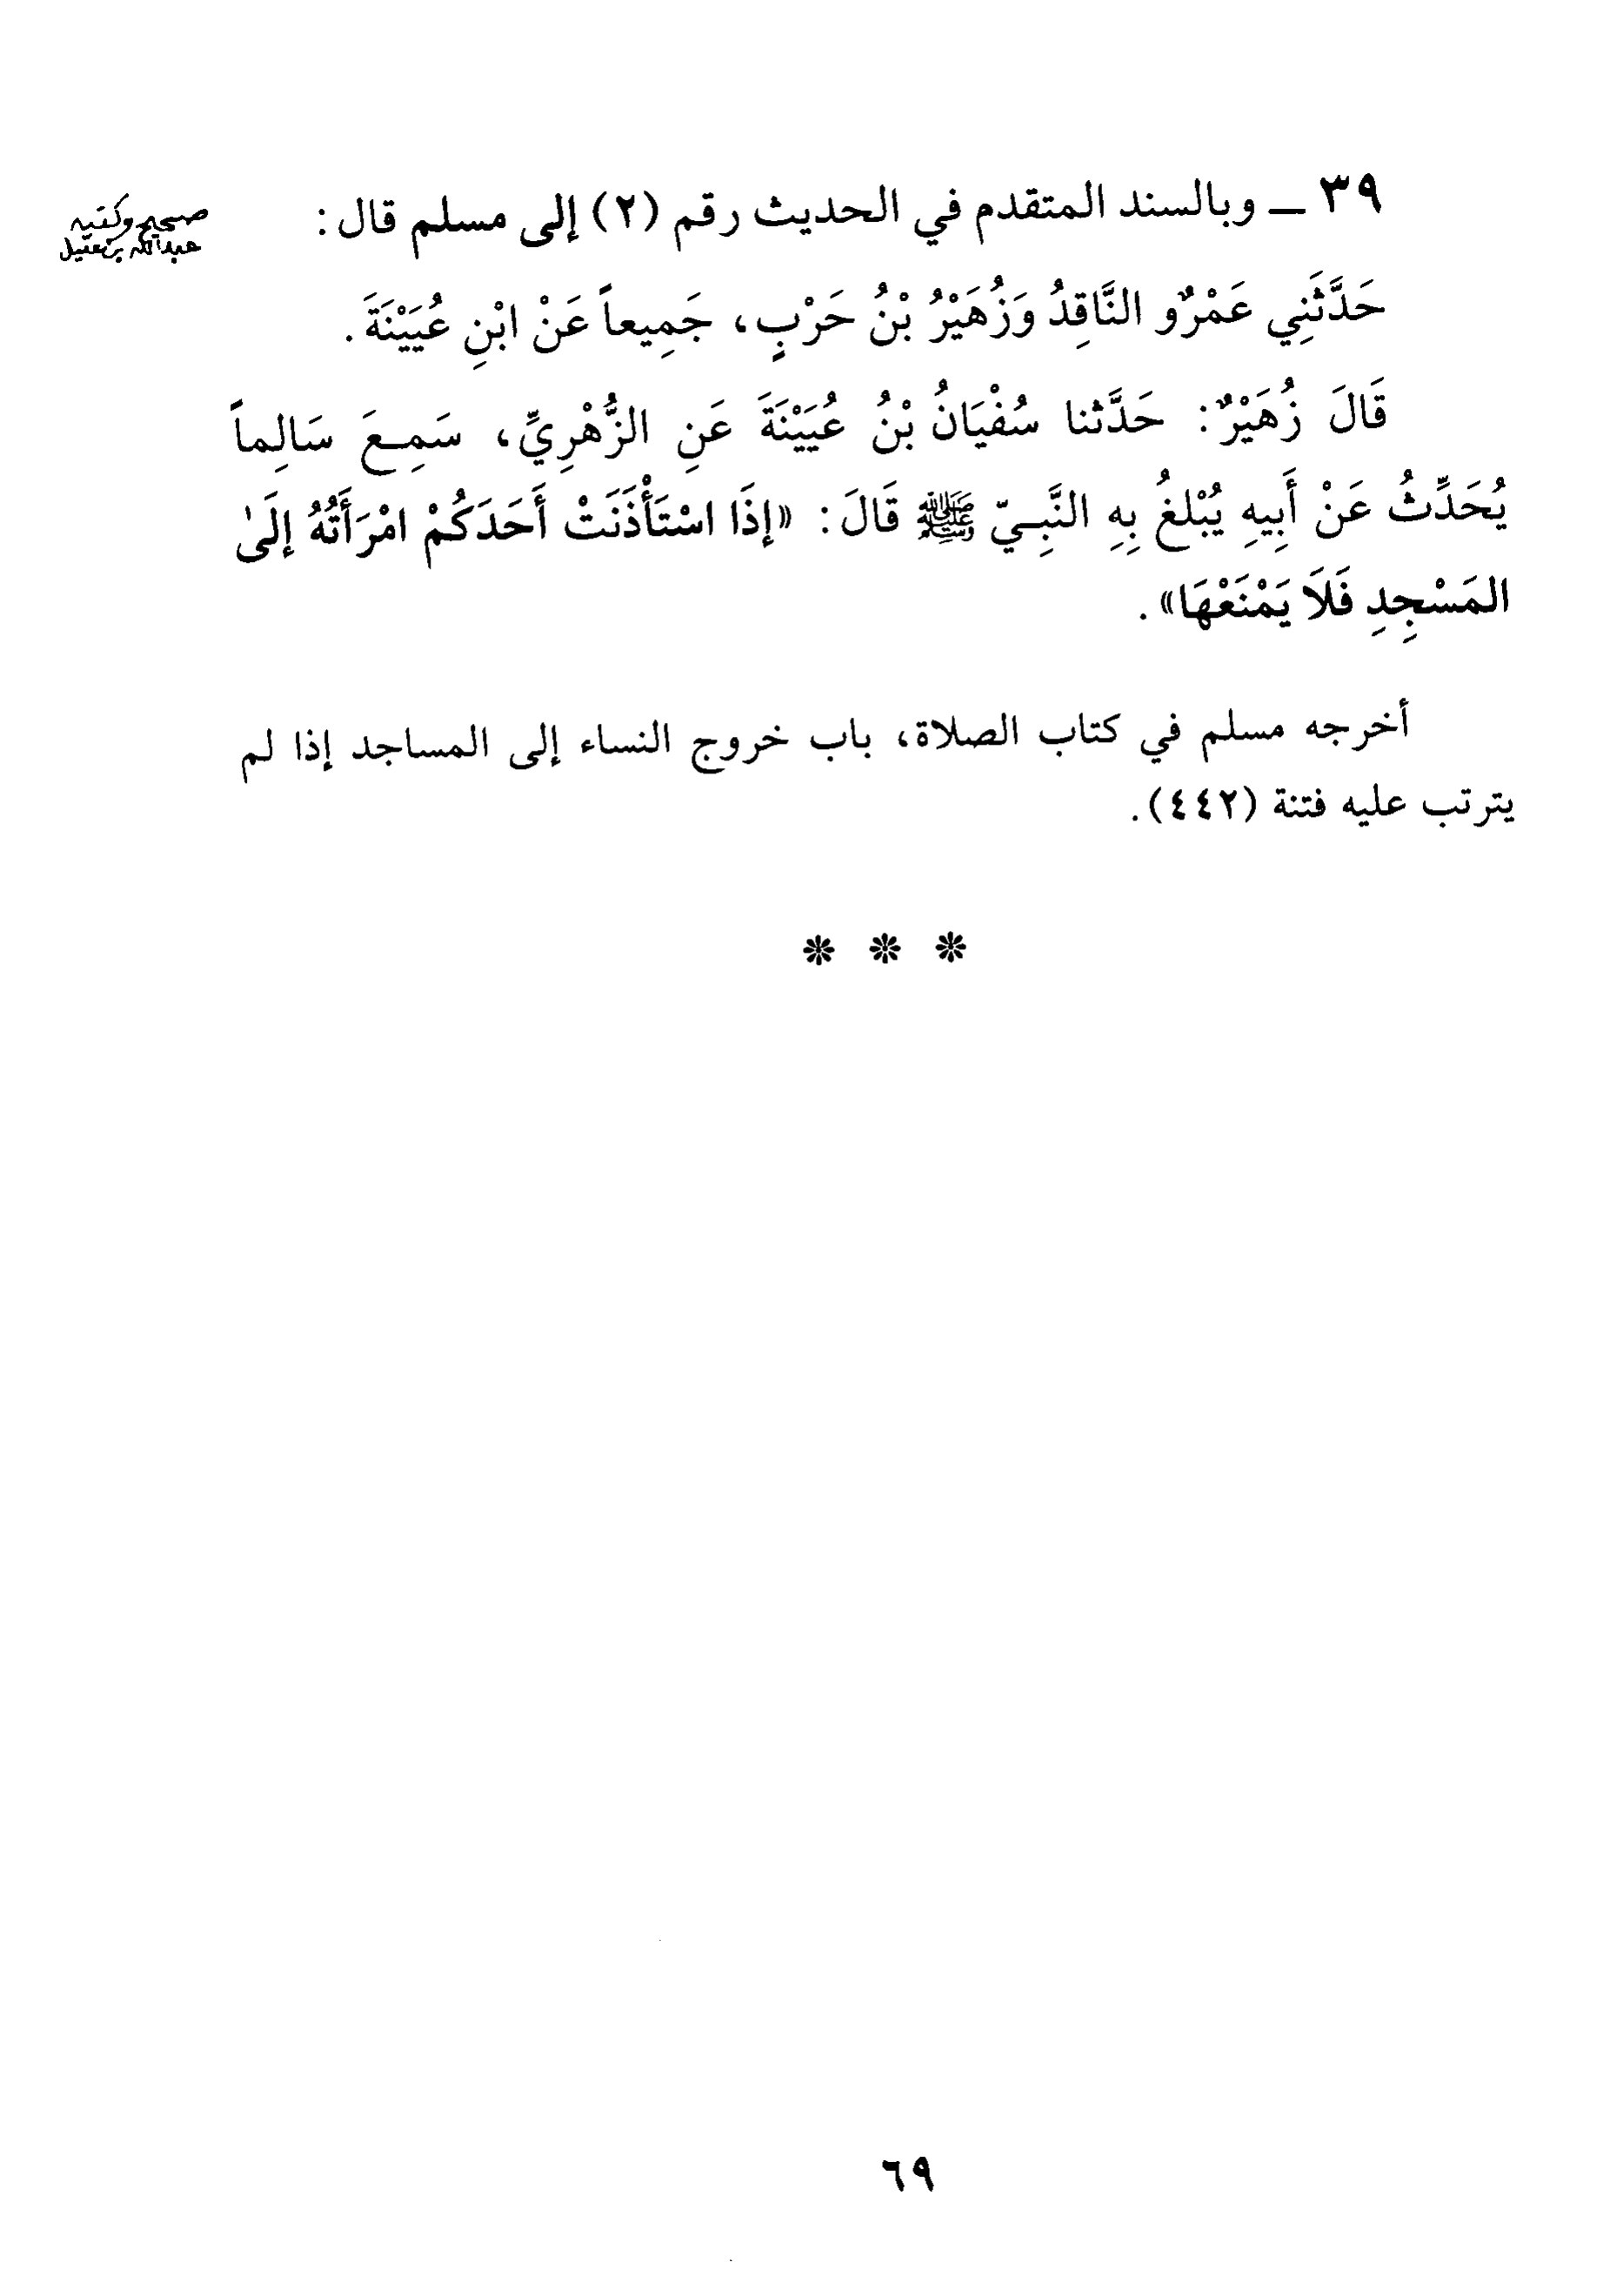 ٣٩ ـ وبالسند المتقدم في الحديث رقم (٢) إلى مسلم قال:
صحيح وكتبه
عبدالله بن عقيل
حَدَّثَنِي عَمْرٌو النَّاقِدُ وَزُهَيْرُ بْنُ حَرْبٍ، جَمِيعاً عَنْ ابْنِ عُيَيْنَةَ.
قَالَ زُهَيْرٌ: حَدَّثنا سُفْيَانُ بْنُ عُيَيْنَةَ عَنِ الزُّهْرِيِّ، سَمِعَ سَالِماً
يُحَدِّثُ عَنْ أَبِيهِ يُبْلغُ بِهِ النَّبِيّ ﷺ قَالَ: «إِذَا اسْتَأْذَنَتْ أَحَدَكُمْ امْرَأَتُهُ إلَىٰ
المَسْجِدِ فَلَا يَمْنَعْهَا».
أخرجه مسلم في كتاب الصلاة، باب خروج النساء إلى المساجد إذا لم
يترتب عليه فتنة (٤٤٢).
٦٩